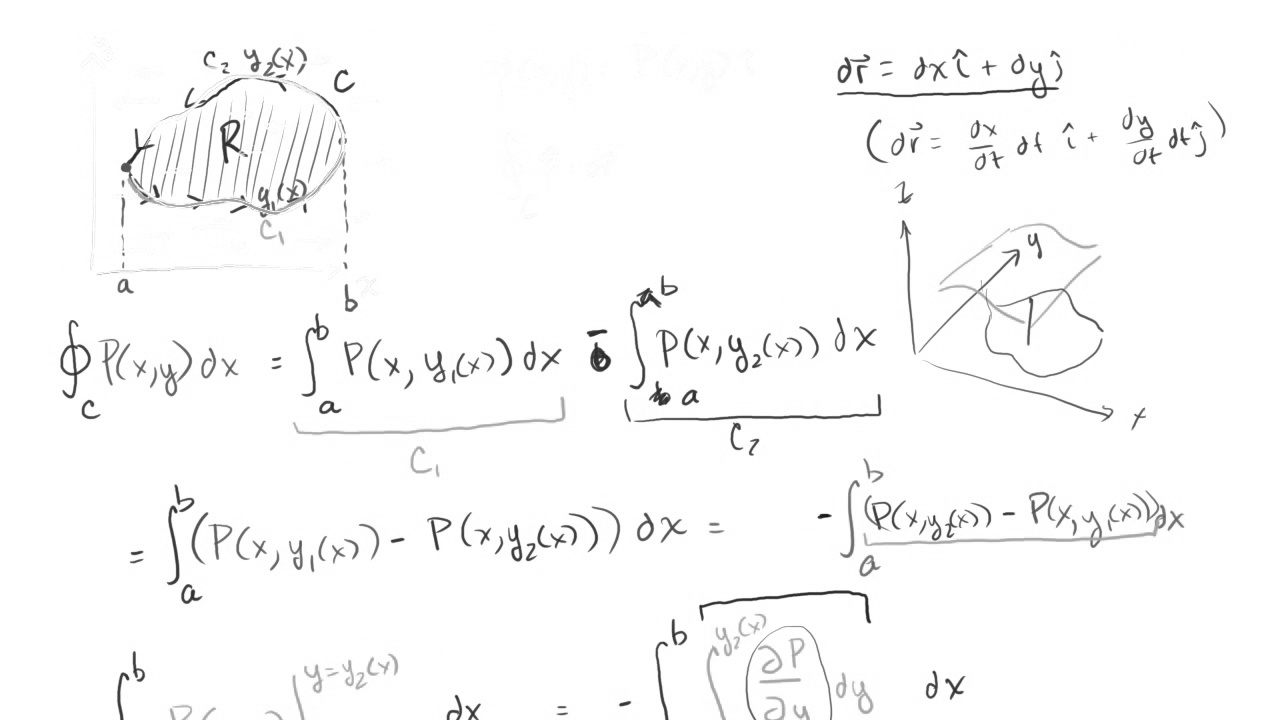 C₂ y₂(x)
C
R
y₁(x)
C₁
a
b
x
dr⃗ = dx î + dy ĵ
(dr⃗ = dx/dt dt î + dy/dt dt ĵ)
z
y
x
∮_C P(x,y) dx = ∫_a^b P(x, y₁(x)) dx - ∫_a^b P(x, y₂(x)) dx
C₁
C₂
= ∫_a^b (P(x, y₁(x)) - P(x, y₂(x))) dx = - ∫_a^b (P(x, y₂(x)) - P(x, y₁(x))) dx
b y=y₂(x) dx = - ∫^b ∫^{y₂(x)} ∂P/∂y dy dx